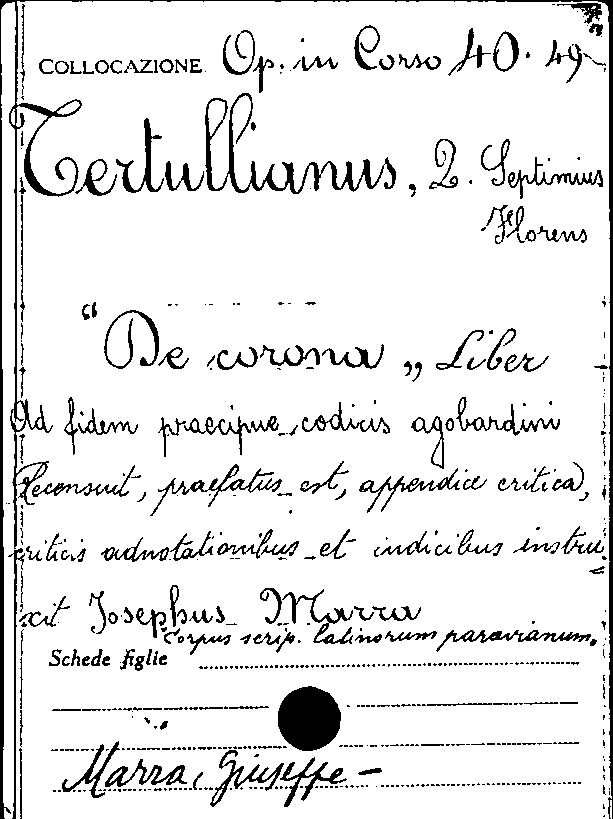 COLLOCAZIONE Op. in Corso 40. 49
Tertullianus, Q. Septimius
Florens
"De corona„ Liber
Ad fidem praecipue codicis agobardini
Recensuit, praefatus est, appendice critica,
criticis adnotationibus et indicibus instru=
xit Josephus Marra
Corpus scrip. latinorum paravianum.
Schede figlie
Marra, Giuseppe -